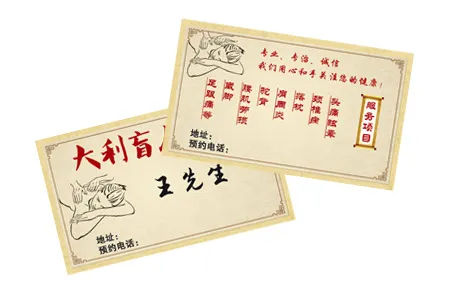 专业、专治、诚信
我们用心和手关注您的健康！
服务项目
头痛眩晕
颈椎病
落枕
肩周炎
驼背
腰肌劳损
崴脚
地址：
预约电话：
大利盲
王先生
地址：
预约电话：